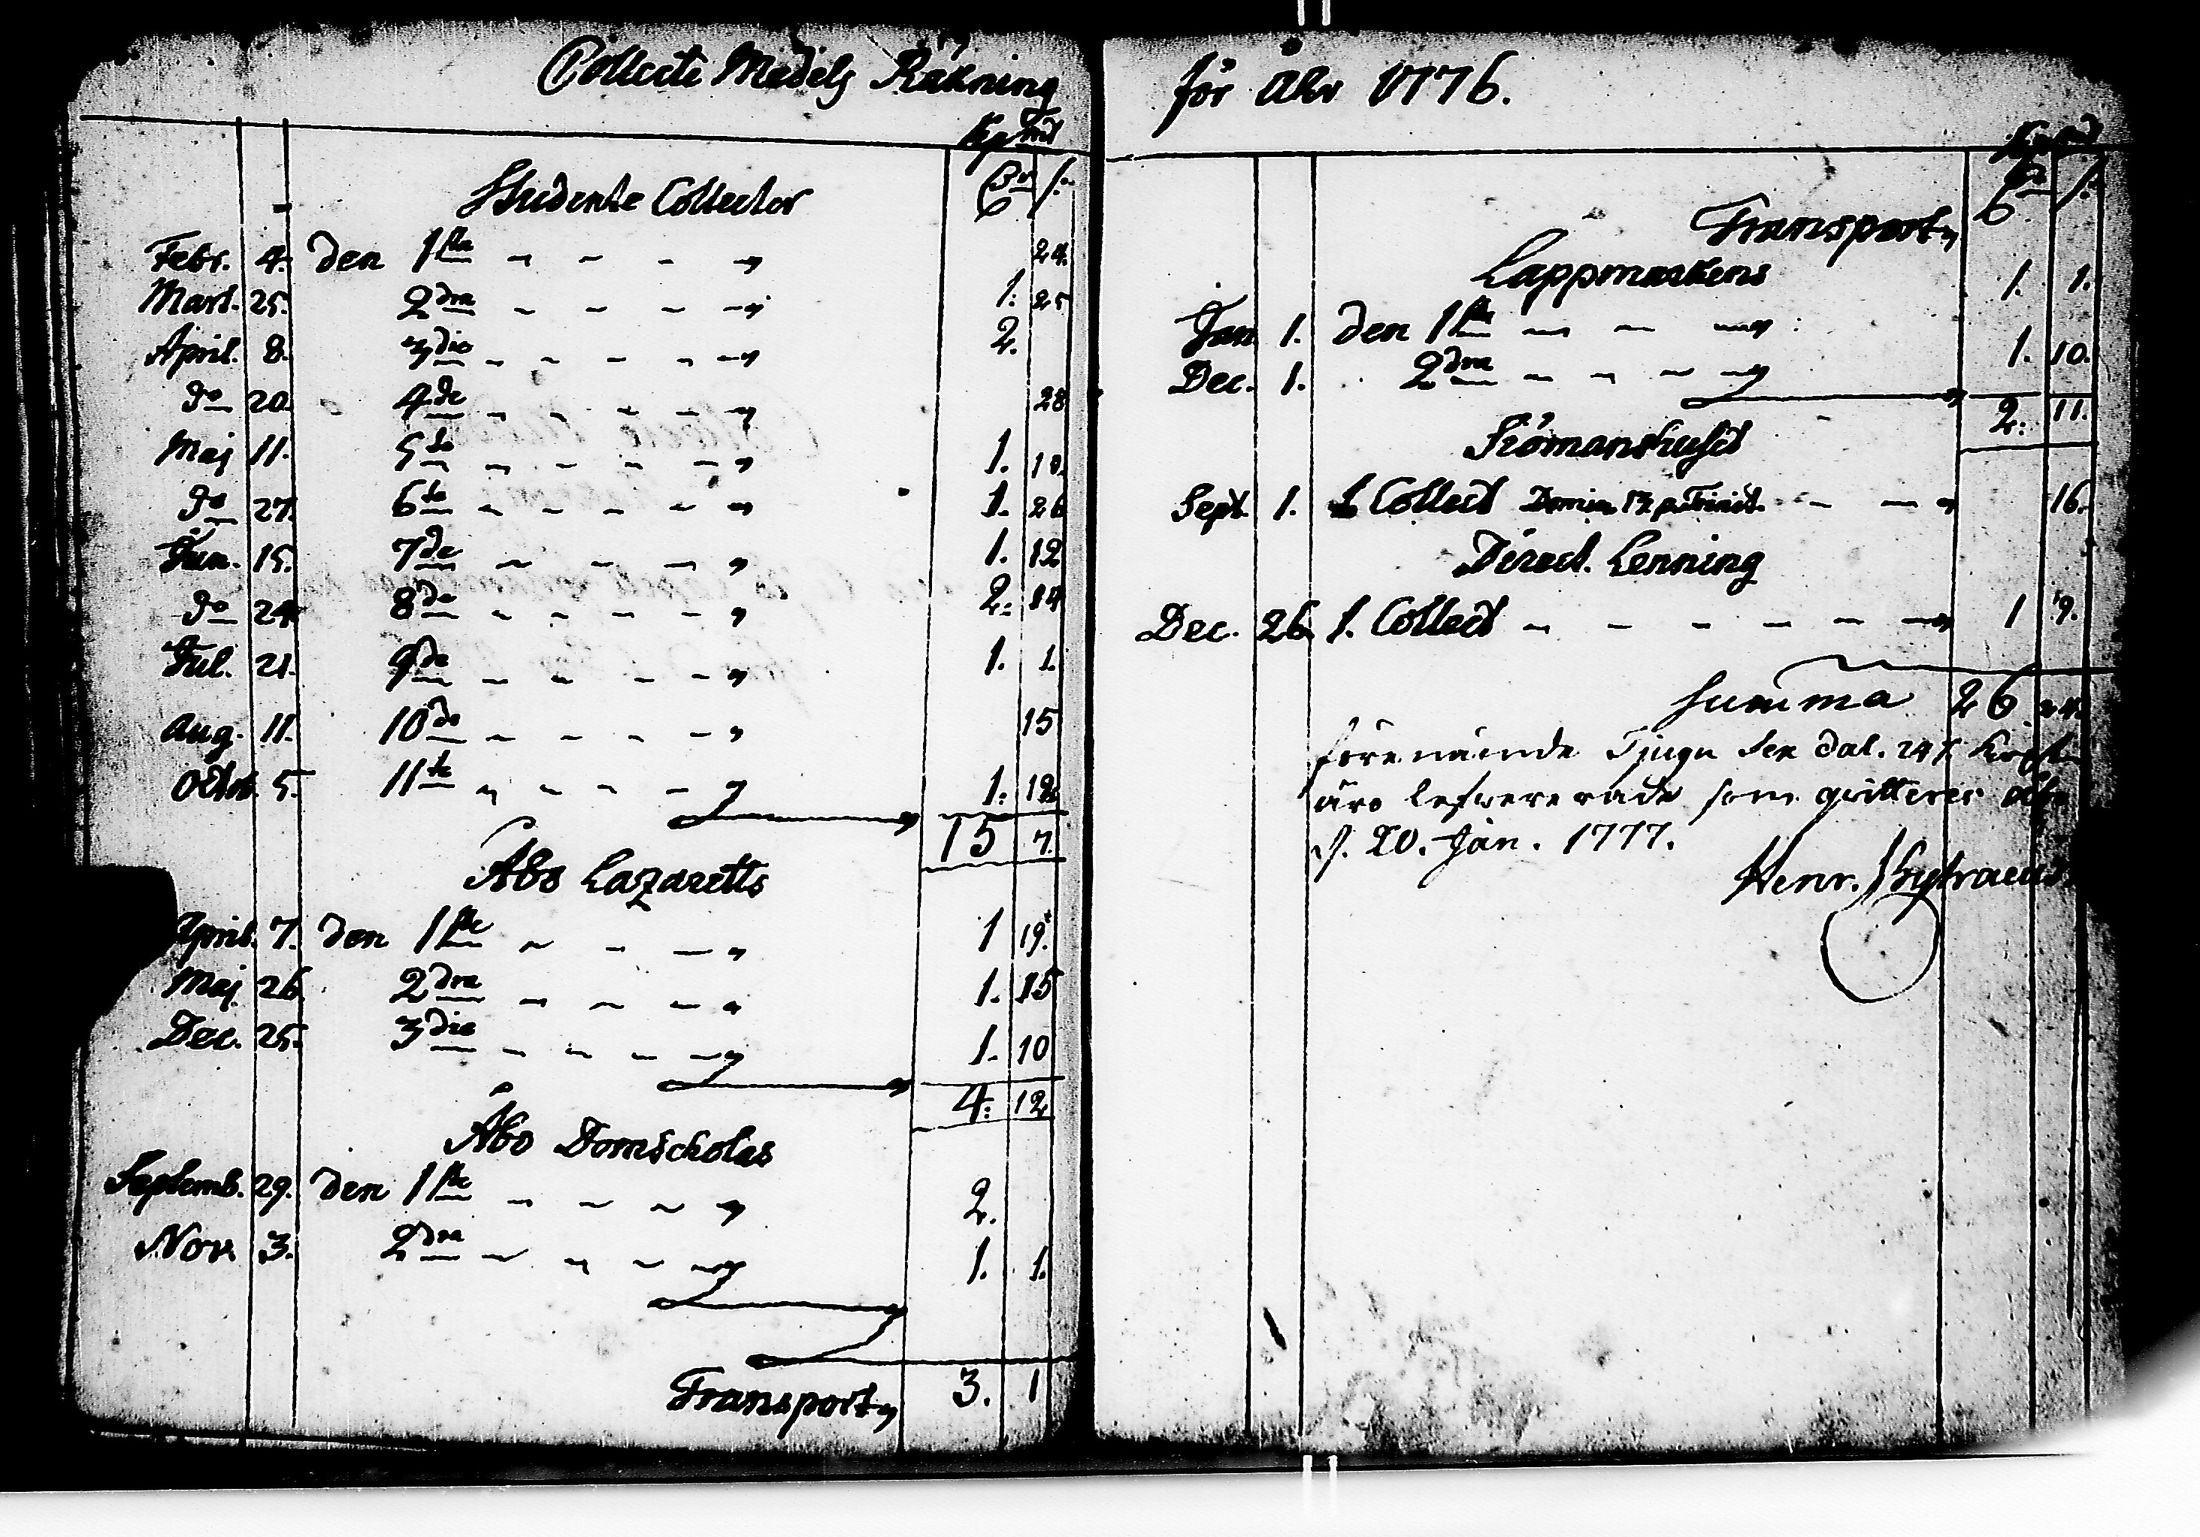 Collecte Medels Räkning
Studente Collecter
Febr. 4. den 1sta 24.
Mart. 25. 2dra 1. 25
April. 8. 3die 2.
do 20. 4de 28
Maj 11. 5te 1. 10.
do 27. 6te 1. 26
Jun. 15. 7de 1. 12
do 24. 8de 2. 14
Jul. 21. 9de 1. 1.
Aug. 11. 10de 15
Octob. 5. 11te 1. 12
15 7.
Åbo Lazaretts
April. 7. den 1ste 1 19.
Maj. 26 2dra 1. 15
Dec. 25. 3die 1. 10
4. 12
Åbo Domscholas
Septemb. 29. den 1ste 2.
Nov. 3. 2dra 1. 1.
Transport 3. 1
för Åhr 1776.
Transport
Lappmarkens
Jan 1. den 1sta 1. 1.
Dec. 1. 2dra 1. 10.
2. 11.
Siömanshuset
Sept. 1. 1 Collect Domin 13 p. Trinit. 16.
Direct. Lenning
Dec. 26 1. Collect 1 9.
Summa 26. 24.
förenämde Tjugu sex dal. 24
äro lefvererade som qvitteres
d. 20. Jan. 1777.
Henr.